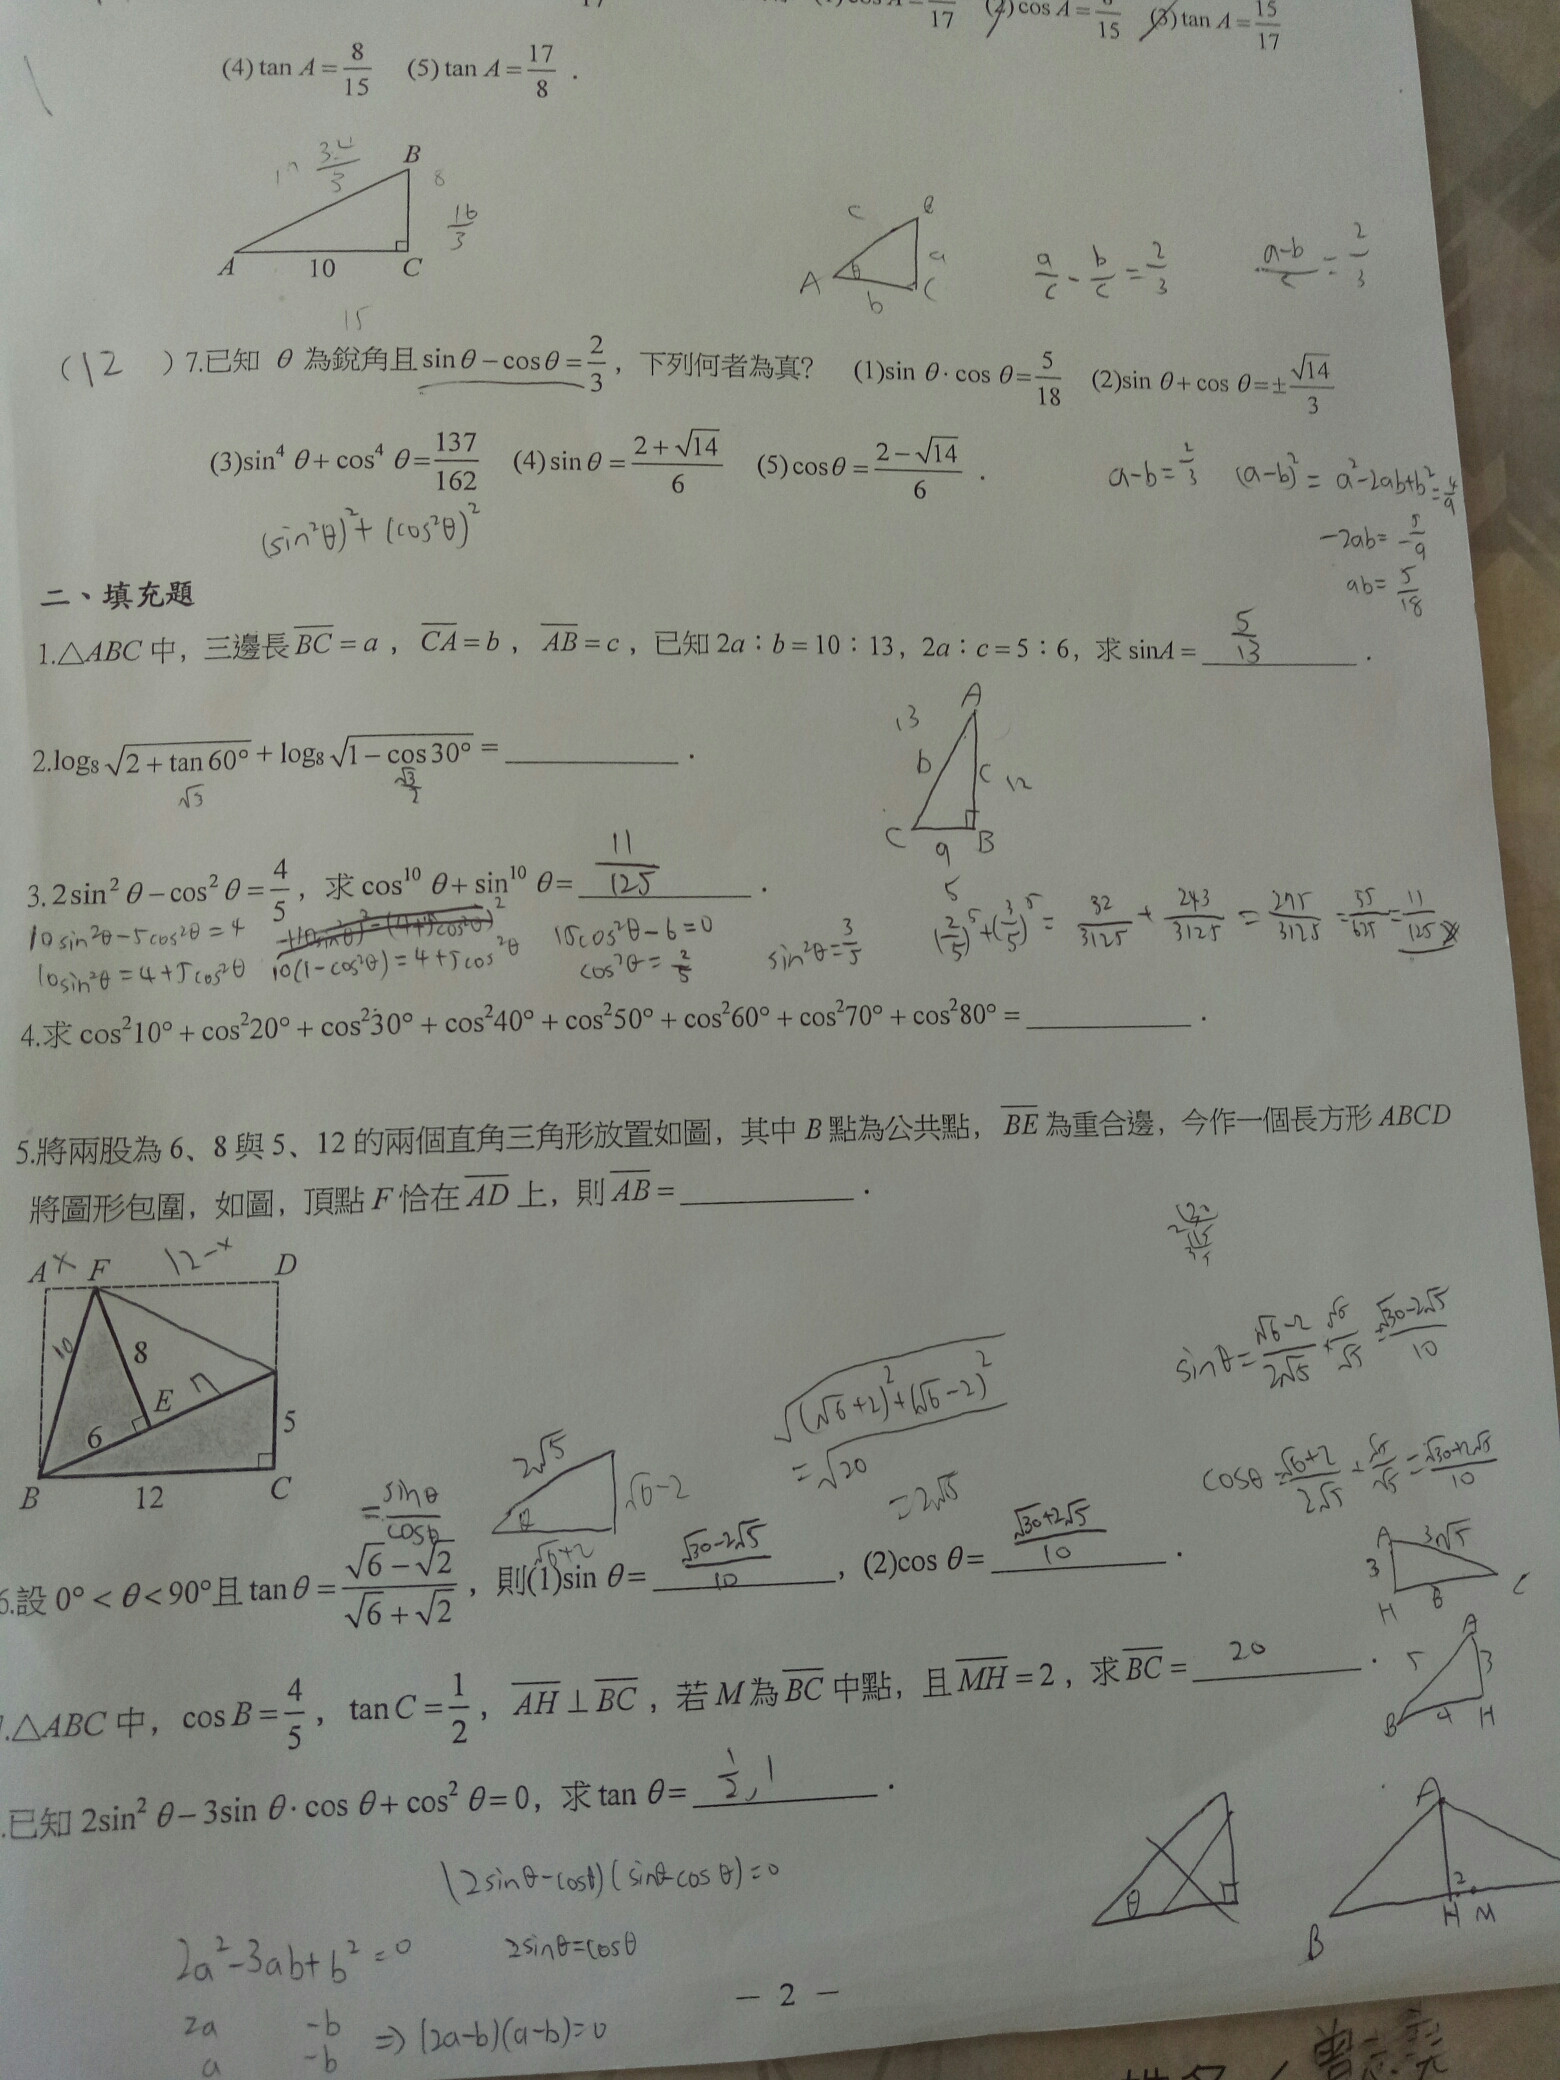 17 (2) cos A = 15 (3) tan A = 15/17
(4) tan A = 8/15 (5) tan A = 17/8 .
B
8
16/3
A 10 C
15
c B
A θ a
b C
a/c - b/c = 2/3
a-b/c = 2/3
(12 ) 7.已知 θ 為銳角且 sin θ − cos θ = 2/3 , 下列何者為真? (1) sin θ · cos θ = 5/18 (2) sin θ + cos θ = ± √14/3
(3) sin⁴ θ + cos⁴ θ = 137/162 (4) sin θ = 2 + √14/6 (5) cos θ = 2 − √14/6 .
(sin²θ)² + (cos²θ)²
a-b = 2/3 (a-b)² = a²-2ab+b² = 4/9
-2ab = -5/9
ab = 5/18
二、填充題
1.△ABC 中, 三邊長 BC = a , CA = b , AB = c , 已知 2a:b = 10:13, 2a:c = 5:6, 求 sinA = 5/13 .
A
13
b c 12
C 9 B
5
2.log₈ √(2 + tan 60°) + log₈ √(1 − cos 30°) = ________ .
√3 √3/2
3. 2sin² θ − cos² θ = 4/5 , 求 cos¹⁰ θ + sin¹⁰ θ = 11/125 .
10sin²θ-5cos²θ = 4
15cos²θ-6 = 0
sin²θ = 3/5
(2/5)⁵+(3/5)⁵ = 32/3125 + 243/3125 = 275/3125 = 55/625 = 11/125
10sin²θ = 4+5cos²θ 10(1-cos²θ) = 4+5cos²θ cos²θ = 2/5
4.求 cos²10° + cos²20° + cos²30° + cos²40° + cos²50° + cos²60° + cos²70° + cos²80° = ________ .
5.將兩股為 6、8 與 5、12 的兩個直角三角形放置如圖, 其中 B 點為公共點, BE 為重合邊, 今作一個長方形 ABCD
將圖形包圍, 如圖, 頂點 F 恰在 AD 上, 則 AB = ________ .
A x F 12-x D
10 8
E
6 5
B 12 C
√(√6+2)²+(√6-2)²
= √20
= 2√5
sinθ = √6-2/2√5 × √5/√5 = √30-2√5/10
cosθ = √6+2/2√5 × √5/√5 = √30+2√5/10
= sinθ/cosθ
2√5 √6-2
θ
√6+2
6.設 0° < θ < 90° 且 tan θ = √6 − √2/√6 + √2 , 則(1)sin θ = √30-2√5/10 , (2)cos θ = √30+2√5/10 .
A 3√5
3
H 8 C
.△ABC 中, cos B = 4/5 , tan C = 1/2 , AH ⊥ BC , 若 M 為 BC 中點, 且 MH = 2 , 求 BC = 20 .
A
5 3
B 4 H
.已知 2sin² θ − 3sin θ · cos θ + cos² θ = 0, 求 tan θ = 1/2, 1 .
(2sinθ-cosθ)(sinθ-cosθ) = 0
θ
A
2
B H M
2a²-3ab+b² = 0 2sinθ = cosθ
2a -b
a -b
⇒ (2a-b)(a-b) = 0
− 2 −